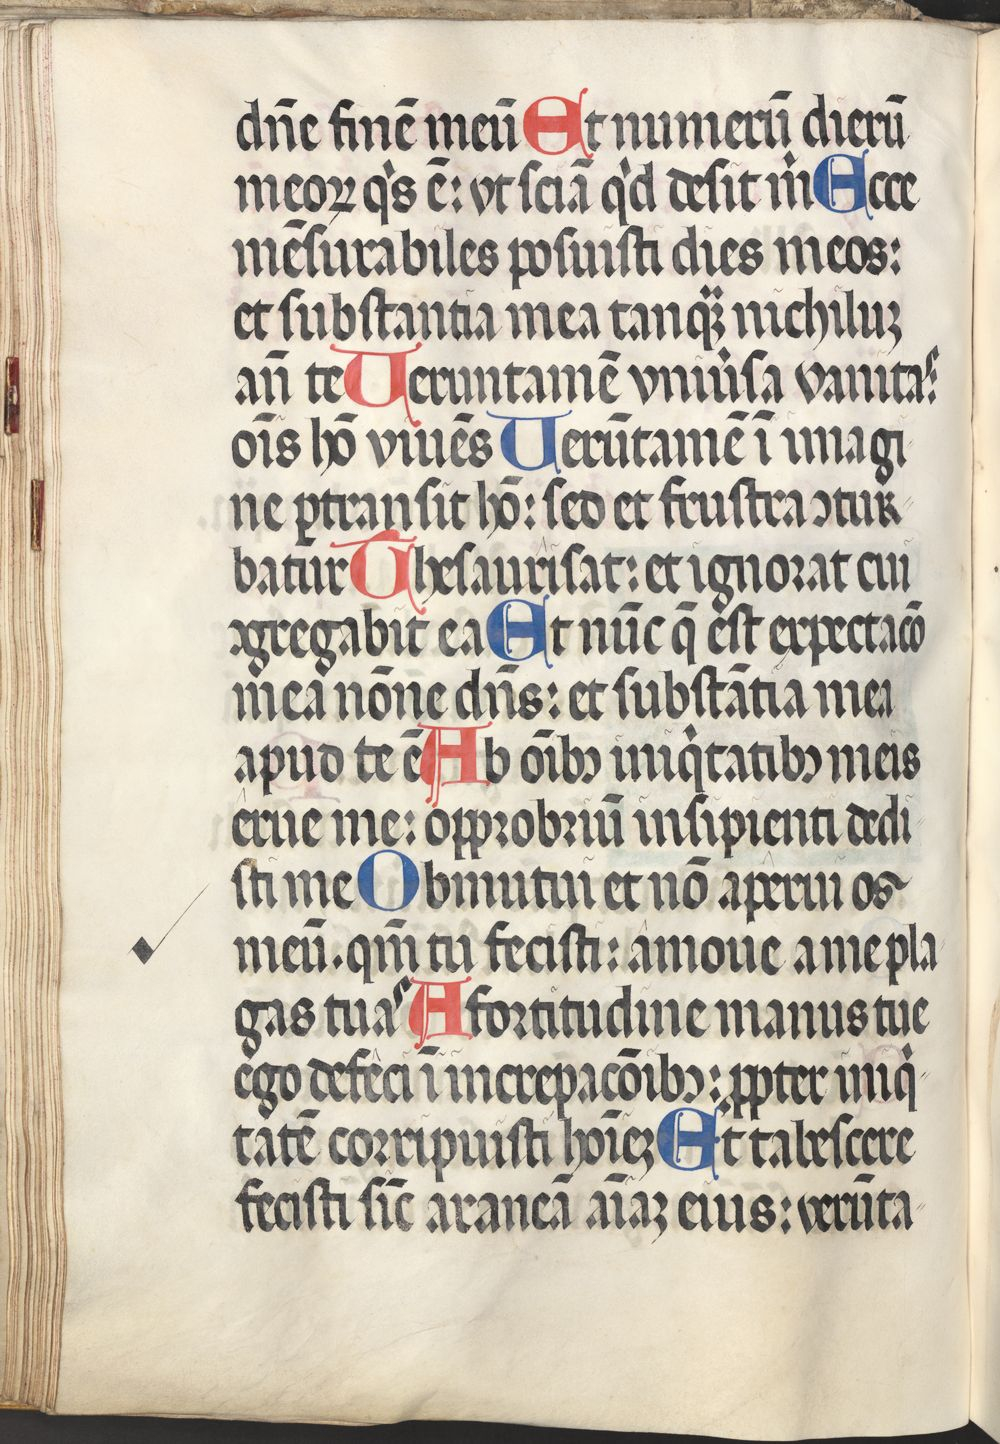 dn̄e finē meū Et numerū dierū
meoꝝ qͥs ē: vt sciā qͥd desit mͥ Ecce
mēsurabiles posuisti dies meos:
et substantia mea tanqᷓꝫ nichiluꝫ
an̄ te Ueruntamē vniu̾sa vanitas:
oīs hō viuēs Uerūtamē ī imagi
ne ꝑtransit hō: sed et frustra ꝯtur
batur Thesaurisat: et ignorat cui
ꝯgregabit ea Et nūc q̄ est expectacō
mea nōne dn̄s: et substātia mea
apud te ē Ab oībꝫ iniqͥtatibꝫ meis
erue me: opprobriū insipienti dedi
sti me Obmutui et nō aperui os
meū. qm̄ tu fecisti: amoue a me pla
gas tuas A fortitudine manus tue
ego defeci ī increpacōibꝫ: ꝓpter iniqͥ
tatē corripuisti hoīeꝫ Et tabescere
fecisti sic̄ araneā aīaꝫ eius: verūta